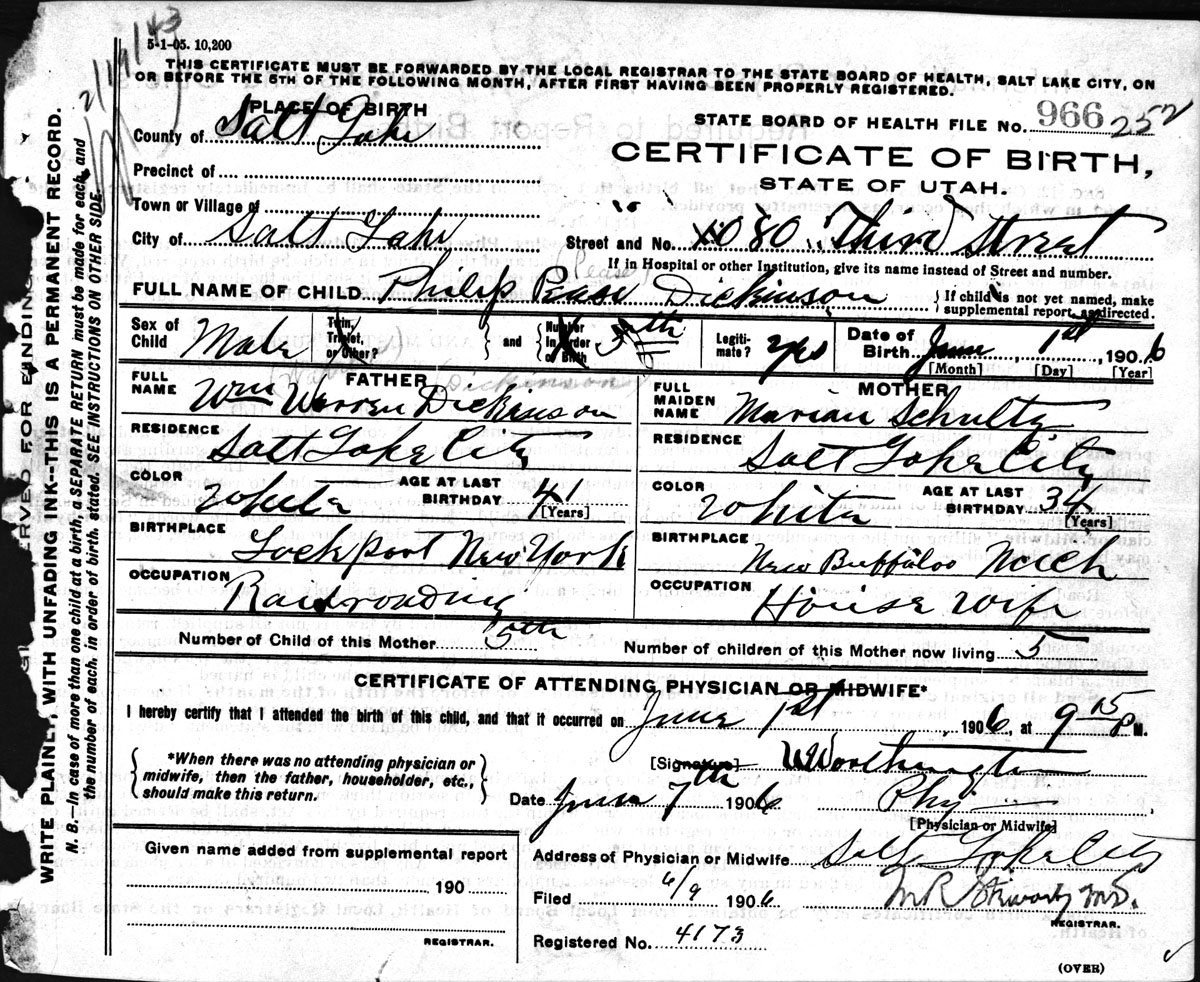 5-1-05. 10,200
2/19/43
THIS CERTIFICATE MUST BE FORWARDED BY THE LOCAL REGISTRAR TO THE STATE BOARD OF HEALTH, SALT LAKE CITY, ON
OR BEFORE THE 5TH OF THE FOLLOWING MONTH, AFTER FIRST HAVING BEEN PROPERLY REGISTERED.
PLACE OF BIRTH
County of Salt Lake
Precinct of
Town or Village of
City of Salt Lake
STATE BOARD OF HEALTH FILE No. 966 252
CERTIFICATE OF BIRTH,
STATE OF UTAH.
Street and No. 1080 Third Street
If in Hospital or other Institution, give its name instead of Street and number.
Pease
FULL NAME OF CHILD Philip Pease Dickinson { If child is not yet named, make supplemental report, as directed.
Sex of Child Male
Twin, Triplet, or Other? } and { Number in Order of Birth 5th
Legitimate? yes
Date of Birth June, 1st, 1906
[Month] [Day] [Year]
FATHER
Dickinson
FULL NAME Wm Warren Dickinson
RESIDENCE Salt Lake City
COLOR White AGE AT LAST BIRTHDAY 41
[Years]
BIRTHPLACE Lockport New York
OCCUPATION Railroading
MOTHER
FULL MAIDEN NAME Marian Schultz
RESIDENCE Salt Lake City
COLOR White AGE AT LAST BIRTHDAY 34
[Years]
BIRTHPLACE New Buffaloo Mich
OCCUPATION House Wife
Number of Child of this Mother 5th Number of children of this Mother now living 5
CERTIFICATE OF ATTENDING PHYSICIAN OR MIDWIFE*
I hereby certify that I attended the birth of this child, and that it occurred on June 1st, 1906, at 9 15 P M.
{ *When there was no attending physician or
midwife, then the father, householder, etc.,
should make this return. }
[Signature] Worthington
Date June 7th 1906 Phy
[Physician or Midwife]
Given name added from supplemental report
190
REGISTRAR.
Address of Physician or Midwife Salt Lake City
Filed 6/9 1906
REGISTRAR.
Registered No. 4173
(OVER)
WRITE PLAINLY, WITH UNFADING INK--THIS IS A PERMANENT RECORD.
N. B.—In case of more than one child at a birth, a SEPARATE RETURN must be made for each, and
the number of each, in order of birth, stated. SEE INSTRUCTIONS ON OTHER SIDE.
FOR BINDING